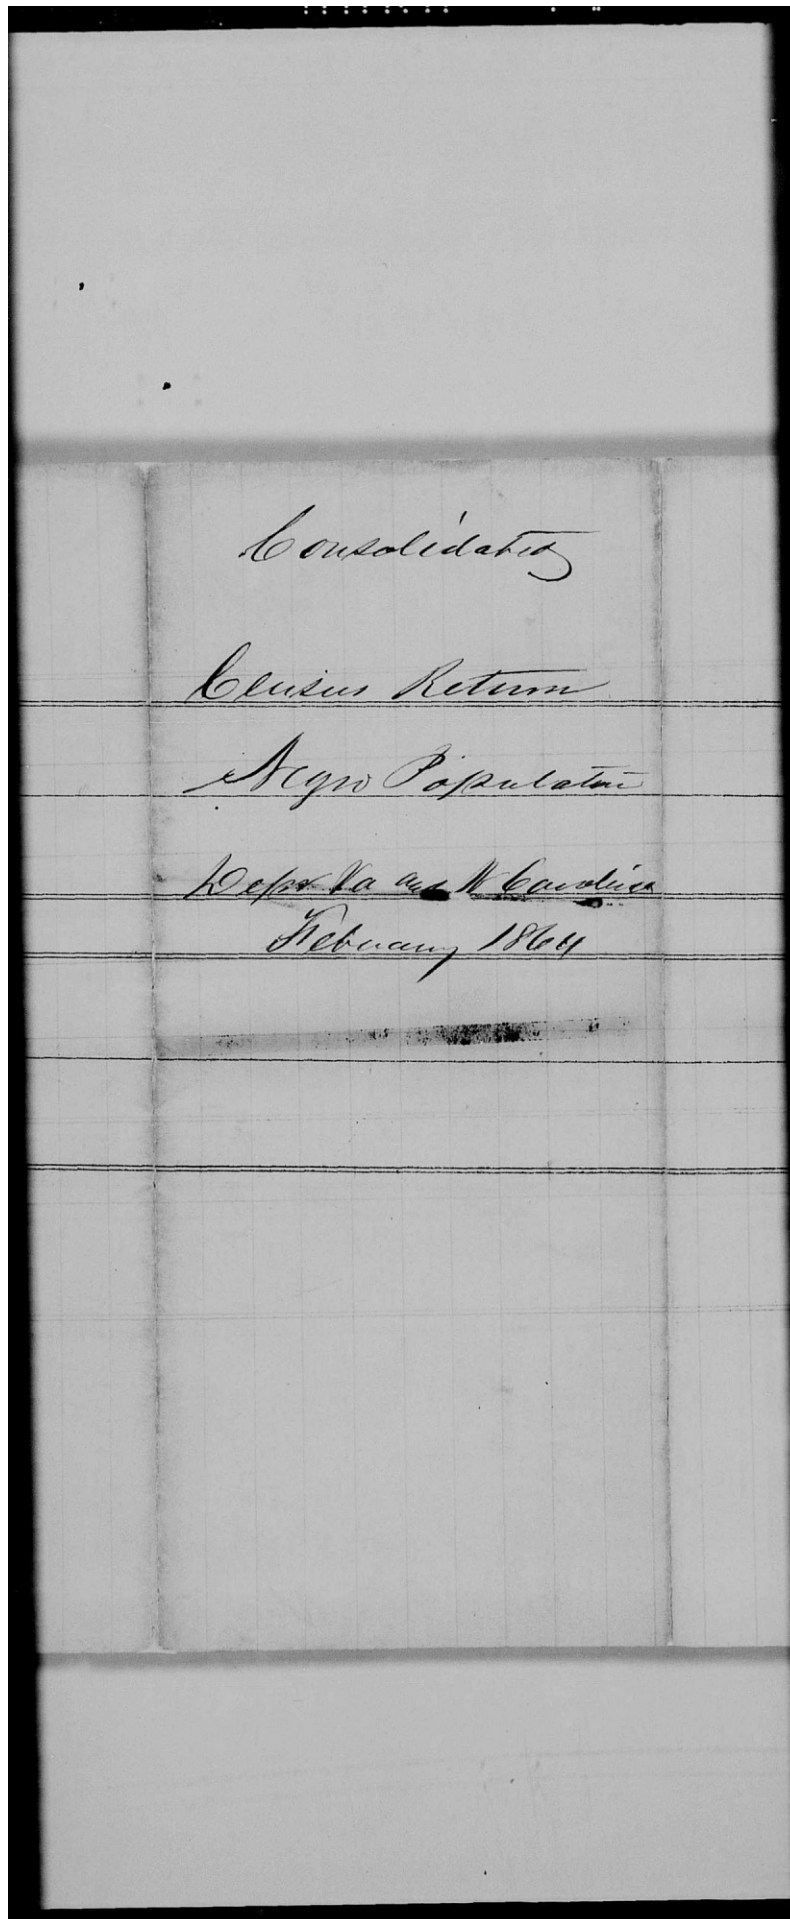 Consolidated
Census Return
Negro Population
Dept Va and N Carolina
February 1864